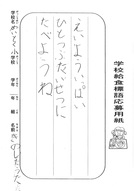 学校給食標語応募用紙
えいよういっぱい
ひとつぶたいせつに
たべようね
学校名
小学校
学年
一年
組
名前